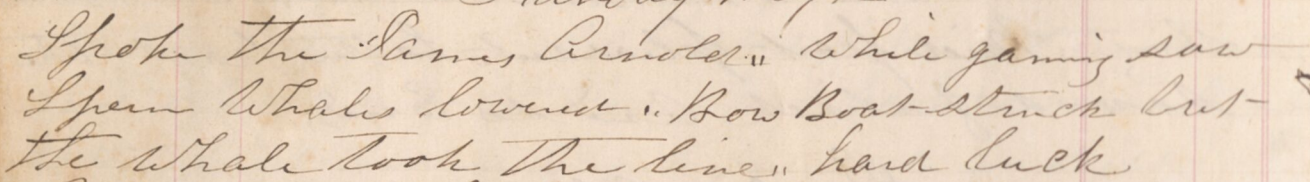 Spoke the "James Arnold" While gaming saw
Sperm Whales lowered " Bow Boat struck but
the Whale took the line " hard luck